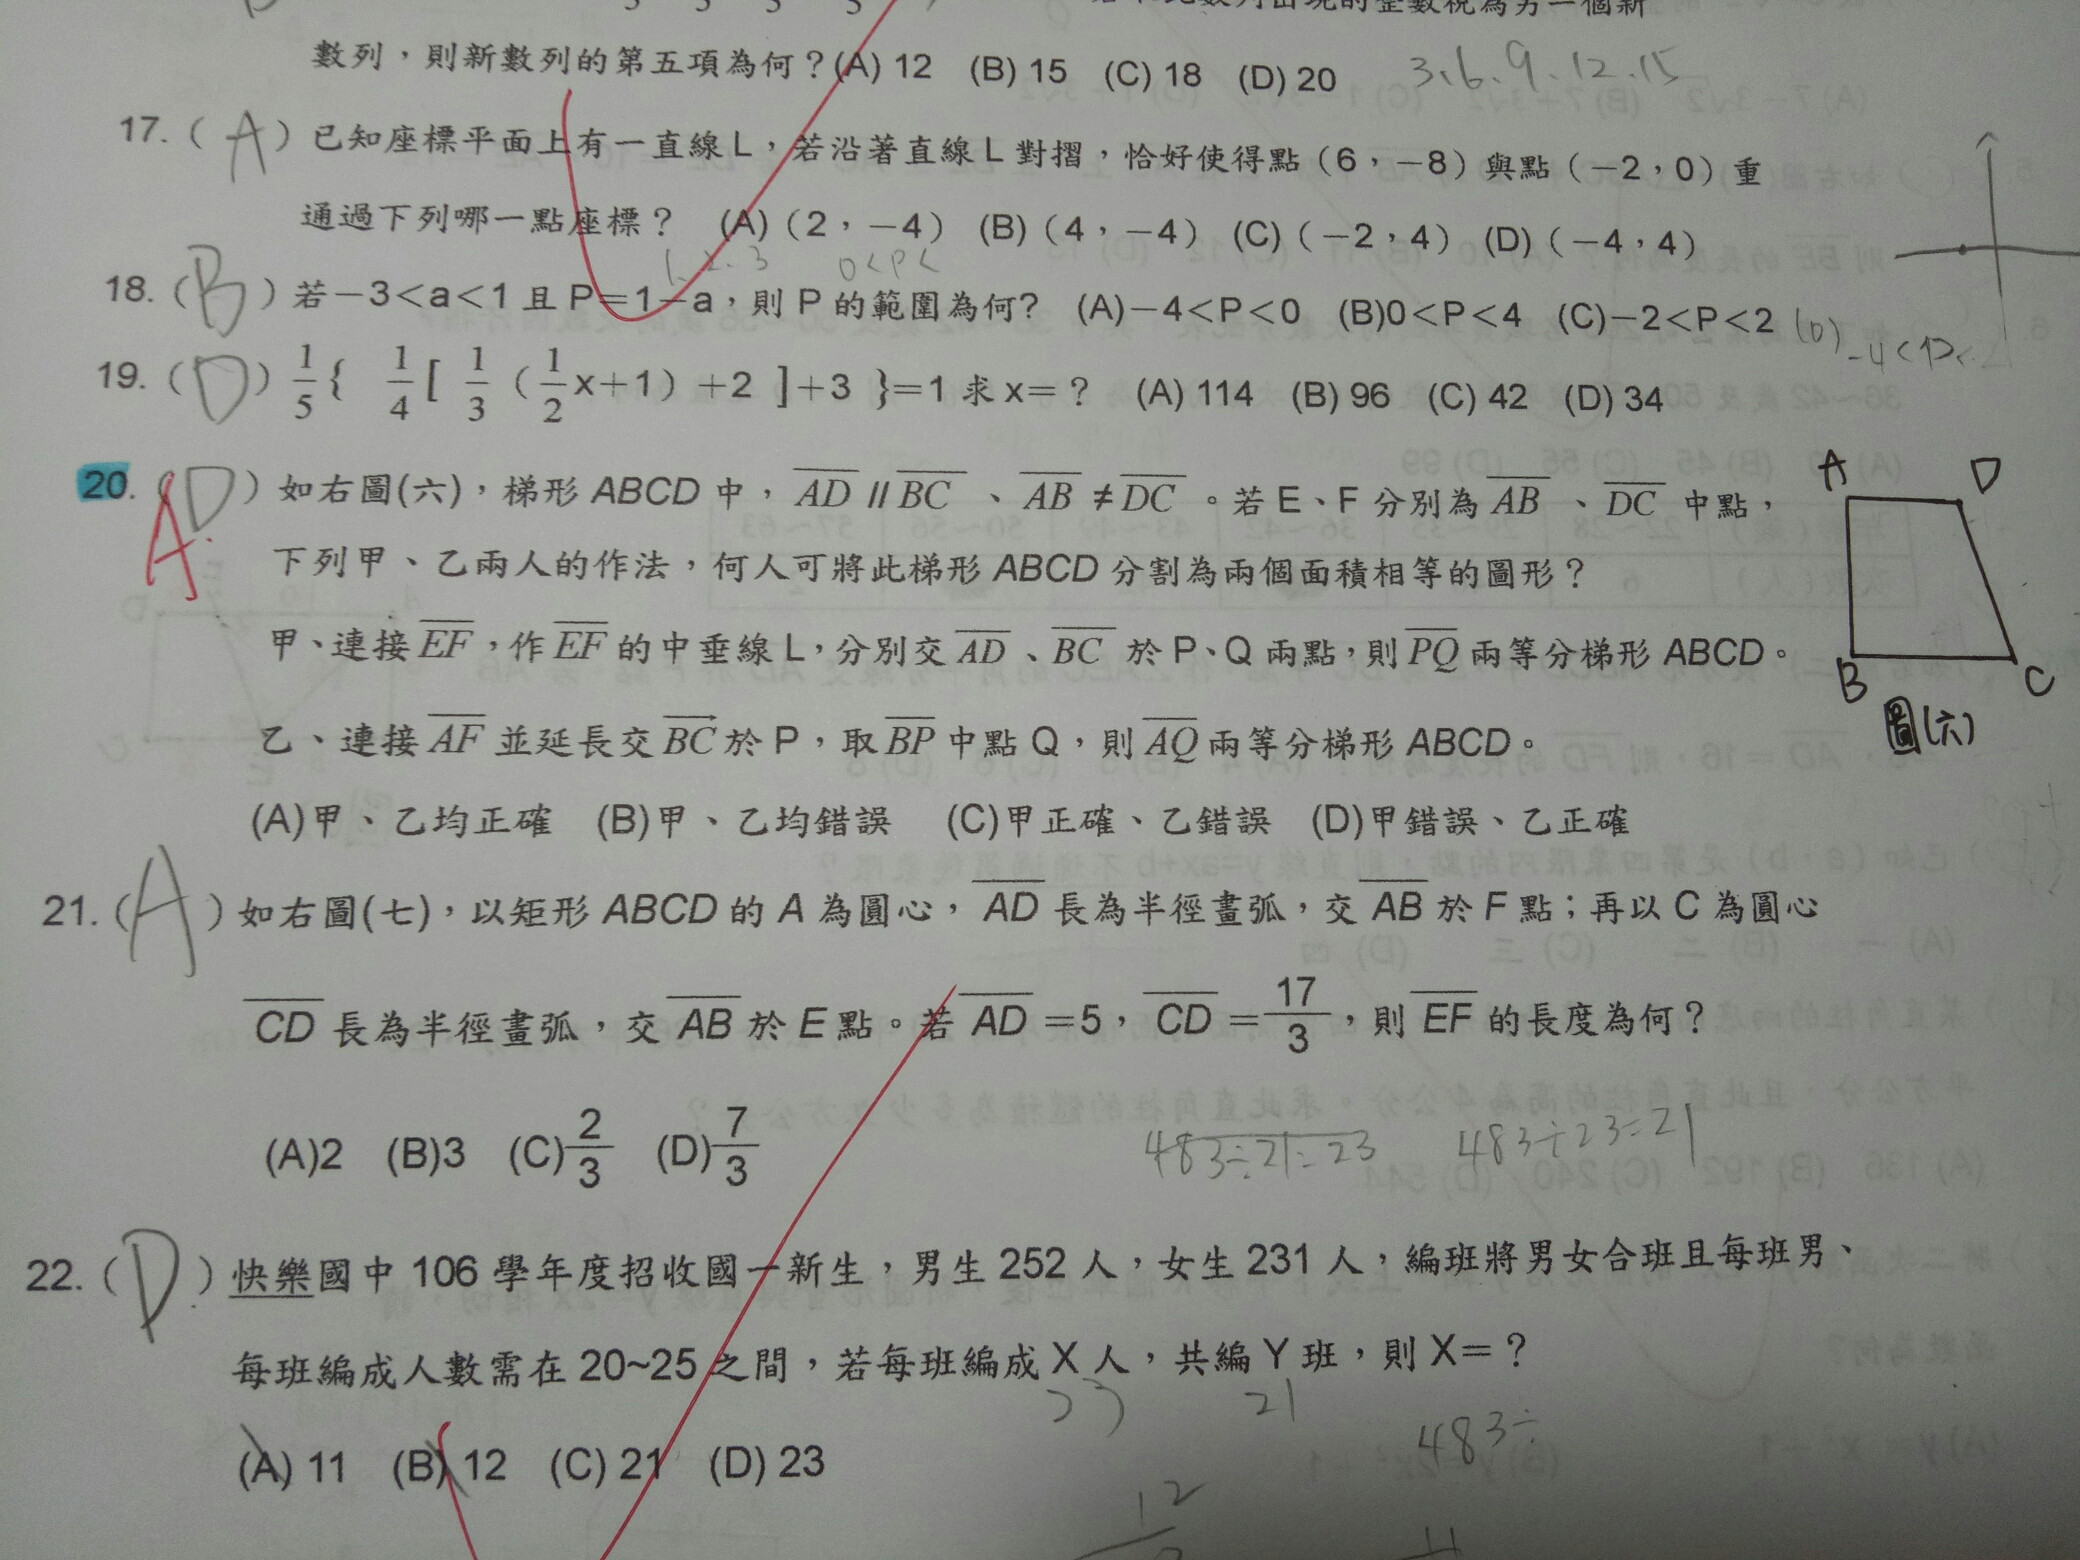 數列,則新數列的第五項為何?(A) 12 (B) 15 (C) 18 (D) 20 3、6、9、12、15
17.( A )已知座標平面上有一直線 L,若沿著直線 L 對摺,恰好使得點(6,-8)與點(-2,0)重
通過下列哪一點座標? (A)(2,-4) (B)(4,-4) (C)(-2,4) (D)(-4,4)
1、2、3 0<P<
18.( B )若-3<a<1 且 P=1-a,則 P 的範圍為何? (A)-4<P<0 (B)0<P<4 (C)-2<P<2 (D) -4<P<2
19.( D ) 1/5{ 1/4[ 1/3 (1/2x+1)+2 ]+3 }=1 求 x=? (A) 114 (B) 96 (C) 42 (D) 34
20.( D )如右圖(六),梯形 ABCD 中, AD // BC 、 AB ≠ DC 。若 E、F 分別為 AB 、 DC 中點,
A
下列甲、乙兩人的作法,何人可將此梯形 ABCD 分割為兩個面積相等的圖形?
甲、連接 EF,作 EF 的中垂線 L,分別交 AD 、BC 於 P、Q 兩點,則 PQ 兩等分梯形 ABCD。
乙、連接 AF 並延長交 BC 於 P,取 BP 中點 Q,則 AQ 兩等分梯形 ABCD。
(A)甲、乙均正確 (B)甲、乙均錯誤 (C)甲正確、乙錯誤 (D)甲錯誤、乙正確
A D
B C
圖(六)
21.( A )如右圖(七),以矩形 ABCD 的 A 為圓心, AD 長為半徑畫弧,交 AB 於 F 點;再以 C 為圓心
CD 長為半徑畫弧,交 AB 於 E 點。若 AD =5, CD =17/3,則 EF 的長度為何?
(A)2 (B)3 (C)2/3 (D)7/3
483÷21=23 483÷23=21
22.( D )快樂國中 106 學年度招收國一新生,男生 252 人,女生 231 人,編班將男女合班且每班男、
每班編成人數需在 20~25 之間,若每班編成 X 人,共編 Y 班,則 X=?
23 21
483÷
(A) 11 (B) 12 (C) 21 (D) 23
12
11